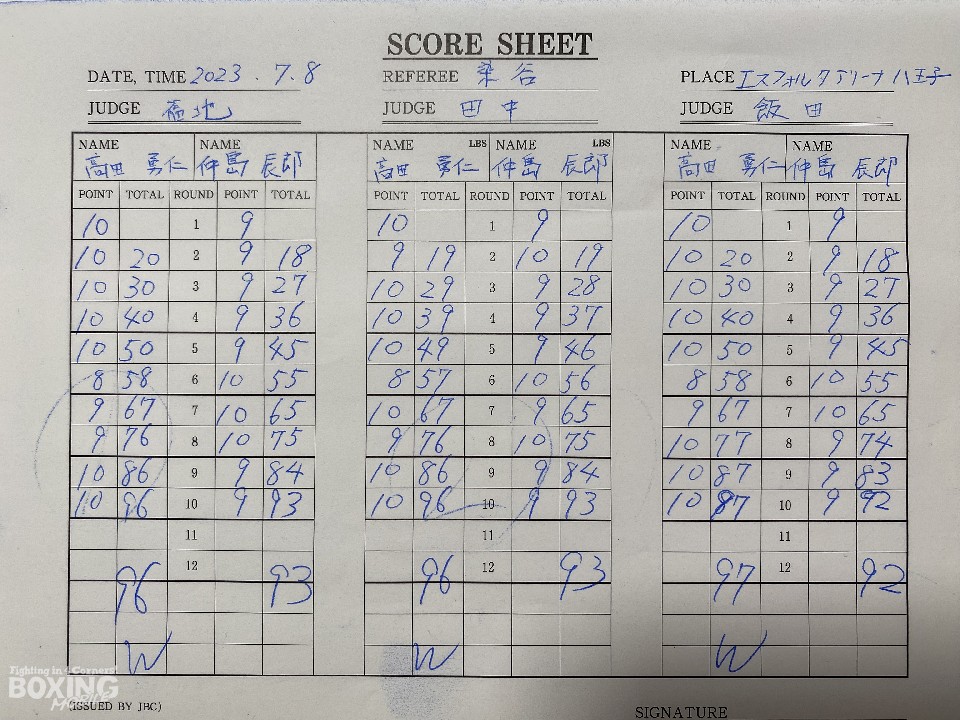 SCORE SHEET
DATE, TIME 2023.7.8 REFEREE 染谷 PLACE エスフォルタアリーナ八王子
JUDGE 福地 JUDGE 田中 JUDGE 飯田
NAME NAME NAME LBS NAME LBS NAME NAME
高田 勇仁 仲島 辰郎 高田 勇仁 仲島 辰郎 高田 勇仁 仲島 辰郎
POINT TOTAL ROUND POINT TOTAL POINT TOTAL ROUND POINT TOTAL POINT TOTAL ROUND POINT TOTAL
10 1 9 10 1 9 10 1 9
10 20 2 9 18 9 19 2 10 19 10 20 2 9 18
10 30 3 9 27 10 29 3 9 28 10 30 3 9 27
10 40 4 9 36 10 39 4 9 37 10 40 4 9 36
10 50 5 9 45 10 49 5 9 46 10 50 5 9 45
8 58 6 10 55 8 57 6 10 56 8 58 6 10 55
9 67 7 10 65 10 67 7 9 65 9 67 7 10 65
9 76 8 10 75 9 76 8 10 75 10 77 8 9 74
10 86 9 9 84 10 86 9 9 84 10 87 9 9 83
10 96 10 9 93 10 96 10 9 93 10 97 10 9 92
11 11 11
12 12 12
96 93 96 93 97 92
W W W
Fighting in 4 Corners!
BOXING
MOBILE
(ISSUED BY JBC) SIGNATURE